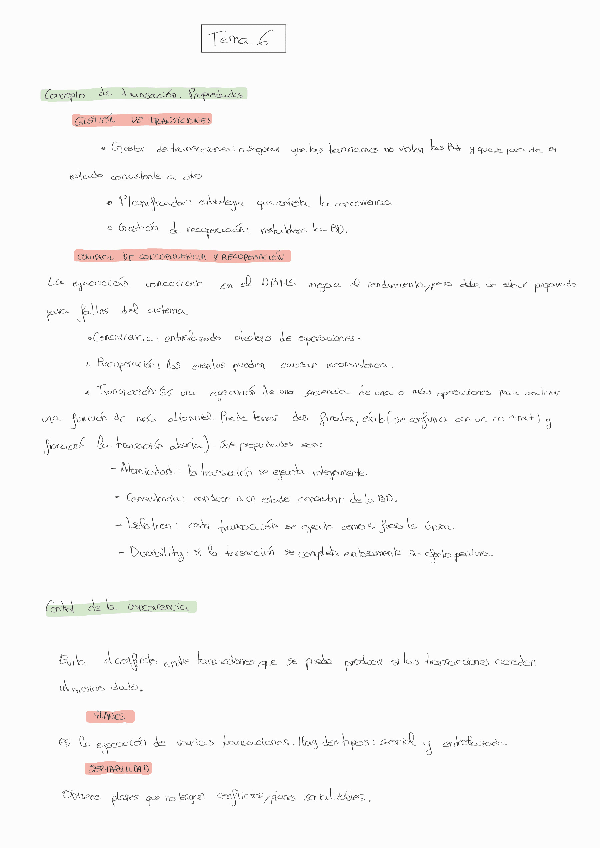 Tema 6
Concepto de transacción. Propiedades
GESTIÓN DE TRANSACCIONES
• Gestor de transacciones: asegurar que las transacciones no violen las RI y que se pase de un
estado consistente a otro
• Planificador: estrategia que controla la concurrencia
• Gestión d recuperación: restablece la BD.
CONTROL DE CONCURRENCIA Y RECUPERACIÓN
La ejecución concurrente en el DBMS mejora el rendimiento, pero debe de estar preparado
para fallos del sistema.
• Concurrencia: entrelazado de operaciones.
• Recuperación: los eventos pueden causar inconsistencia.
• Transacción: Es una ejecución de una secuencia de una o más operaciones para realizar
una función de nivel. Puede tener dos finales, éxito (se confirma con un commit) y
fracaso (la transacción aborta). Sus propiedades son:
- Atomicidad: la transacción se ejecuta íntegramente.
- Consistencia: conducir a un estado consistente de la BD.
- Isolation: cada transacción se ejecuta como si fuese la única.
- Durability: si la transacción se completa exitosamente su efecto perdura.
Control de la concurrencia
Evita el conflicto entre transacciones, que se puede producir si las transacciones acceden
al mismo dato.
PLANES
Es la ejecución de varias transacciones. Hay dos tipos: serial y entrelazado.
SERIABILIDAD
Obtiene planes que no tengan conflictos, planes serializables.